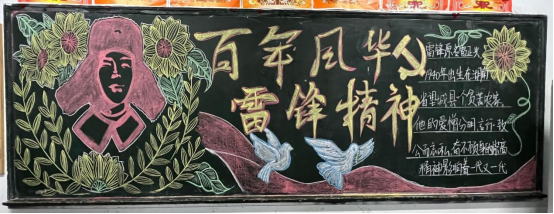 百年风华
雷锋精神
雷锋原名雷正兴
1940年出生在湖南
省望城县一个贫苦农家
他的爱憎分明言行一致
公而忘私奋不顾身的
精神影响着一代又一代